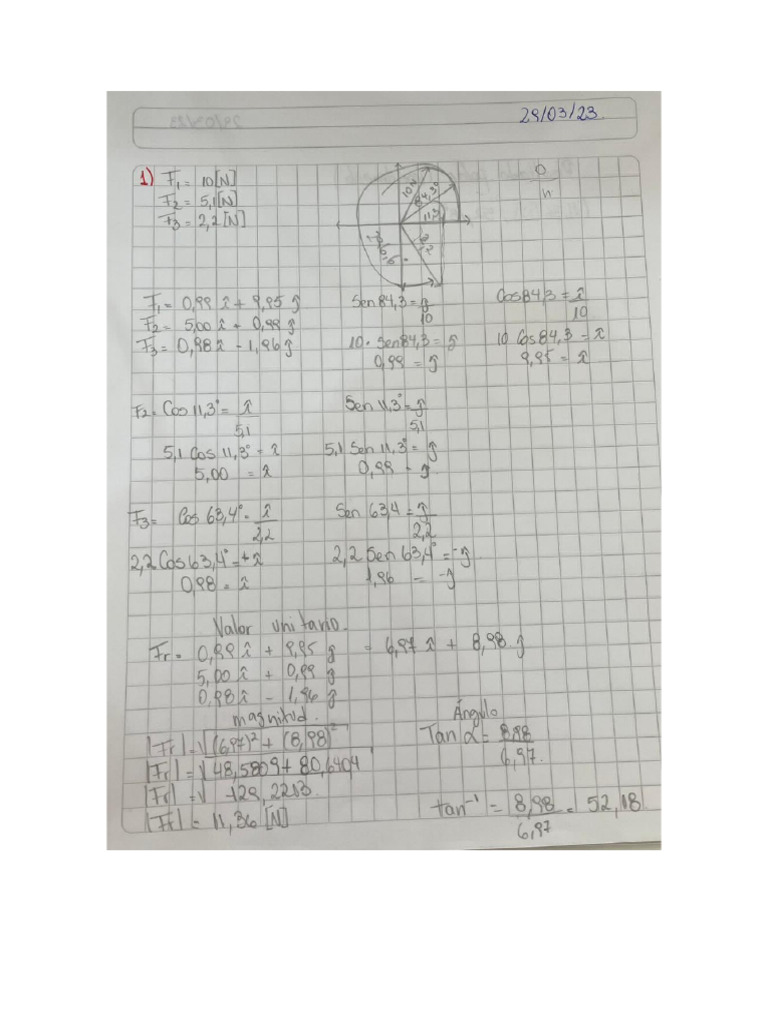 29/03/23
1) F₁ = 10[N]
F₂ = 5,1[N]
F₃ = 2,2[N]
10
84,3°
11,3
2,2
O
h
F₁ = 0,99 î + 9,95 ĵ
F₂ = 5,00 î + 0,99 ĵ
F₃ = 0,98 î - 1,96 ĵ
Sen 84,3 = ĵ/10
10 · Sen 84,3 = ĵ
0,99 = ĵ
Cos 84,3 = î/10
10 Cos 84,3 = î
9,95 = î
F₂ = Cos 11,3° = î/5,1
5,1 Cos 11,3° = î
5,00 = î
Sen 11,3° = ĵ/5,1
5,1 Sen 11,3° = ĵ
0,99 = ĵ
F₃ = Cos 63,4° = î/2,2
2,2 Cos 63,4° = + î
0,98 = î
Sen 63,4 = ĵ/2,2
2,2 Sen 63,4° = -ĵ
1,96 = -ĵ
Valor unitario.
Fr = 0,99 î + 9,95 ĵ = 6,97 î + 8,98 ĵ
5,00 î + 0,99 ĵ
0,98 î - 1,96 ĵ
magnitud.
|Fr| = √(6,97)² + (8,98)²
|Fr| = √48,5809 + 80,6404
|Fr| = √129,2213
|Fr| = 11,36 [N]
Ángulo
Tan α = 8,98/6,97.
tan⁻¹ = 8,98/6,97 = 52,18